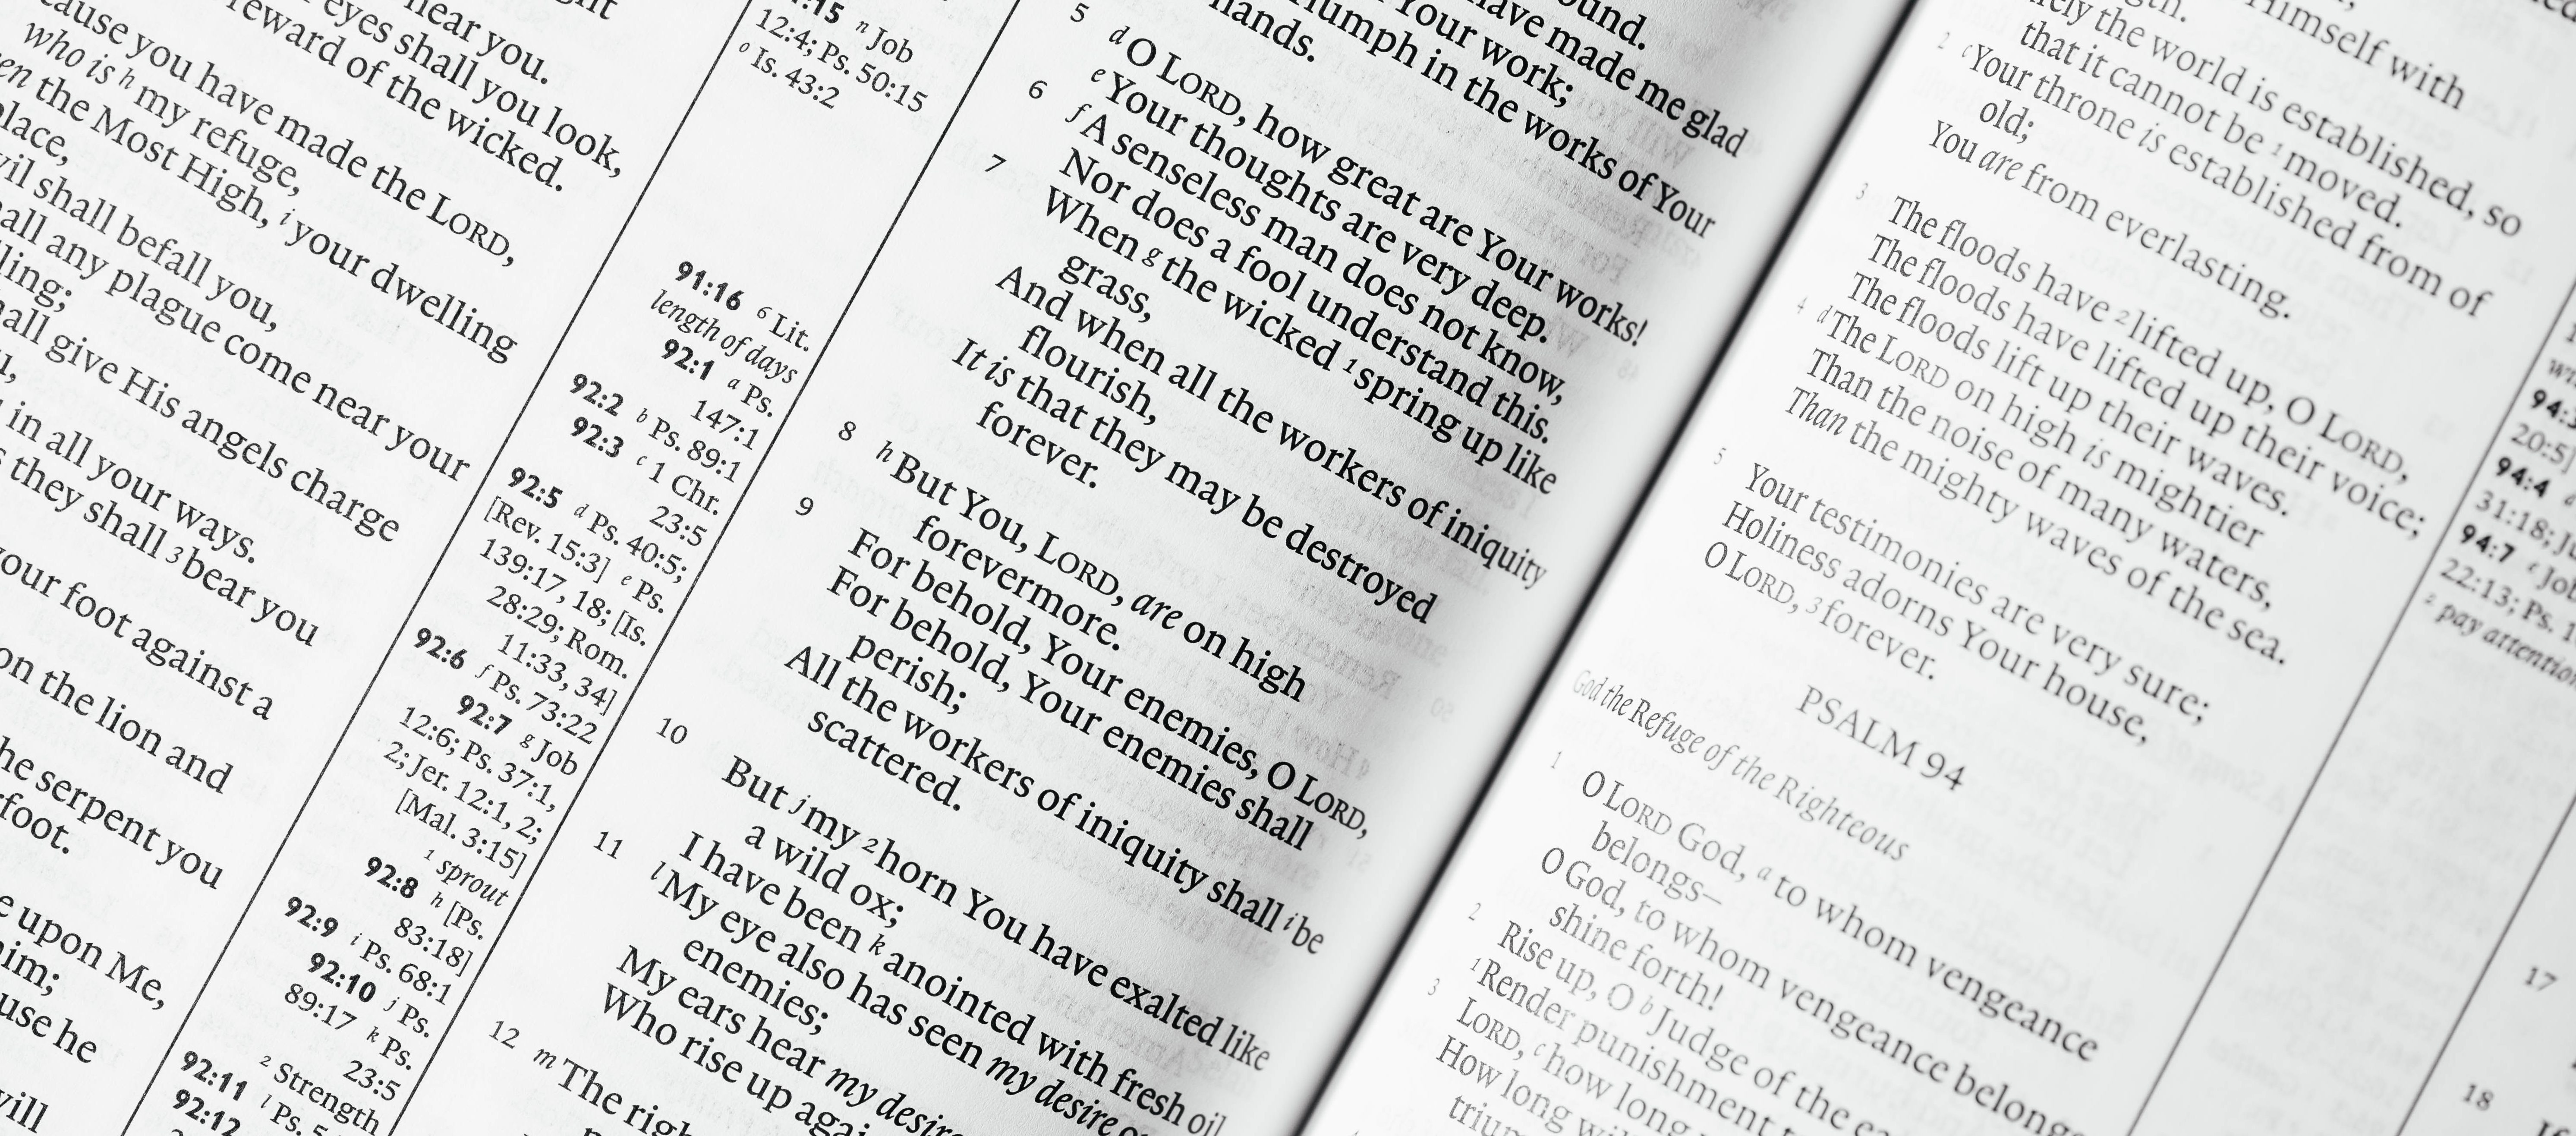 near you.
eyes shall you look,
reward of the wicked.
you have made the LORD,
who is h my refuge,
the Most High, i your dwelling
place,
shall befall you,
any plague come near your
give His angels charge
in all your ways.
they shall 3 bear you
your foot against a
on the lion and
serpent you
foot.
upon Me,
he
n Job
12:4; Ps. 50:15
o Is. 43:2
91:16 6 Lit.
length of days
92:1 a Ps.
147:1
92:2 b Ps. 89:1
92:3 c 1 Chr.
23:5
92:5 d Ps. 40:5;
[Rev. 15:3] e Ps.
139:17, 18; [Is.
28:29; Rom.
11:33, 34]
92:6 f Ps. 73:22
92:7 g Job
12:6; Ps. 37:1,
2; Jer. 12:1, 2;
[Mal. 3:15]
1 sprout
92:8 h [Ps.
83:18]
92:9 i Ps. 68:1
92:10 j Ps.
89:17 k Ps.
23:5
2 Strength
92:11 l Ps.
92:12
have made me glad
Your work;
triumph in the works of Your
hands.
5 d O LORD, how great are Your works!
e Your thoughts are very deep.
6 f A senseless man does not know,
Nor does a fool understand this.
7 When g the wicked 1 spring up like
grass,
And when all the workers of iniquity
flourish,
It is that they may be destroyed
forever.
8 h But You, LORD, are on high
forevermore.
9 For behold, Your enemies, O LORD,
For behold, Your enemies shall
perish;
All the workers of iniquity shall i be
scattered.
10 But j my 2 horn You have exalted like
a wild ox;
I have been k anointed with fresh oil
11 l My eye also has seen my desire
enemies;
My ears hear my desire
Who rise up
12 m The
Himself with
the world is established, so
that it cannot be 1 moved.
2 c Your throne is established from of
old;
You are from everlasting.
3 The floods have 2 lifted up, O LORD,
The floods have lifted up their voice;
The floods lift up their waves.
4 d The LORD on high is mightier
Than the noise of many waters,
Than the mighty waves of the sea.
5 Your testimonies are very sure;
Holiness adorns Your house,
O LORD, 3 forever.
PSALM 94
God the Refuge of the Righteous
1 O LORD God, a to whom vengeance
belongs—
O God, to whom vengeance belongs,
shine forth!
2 Rise up, O b Judge of the
1 Render punishment
3 LORD, c how long
How long
94:4
31:18;
94:7 e Job
22:13; Ps.
2 pay attention
17
18